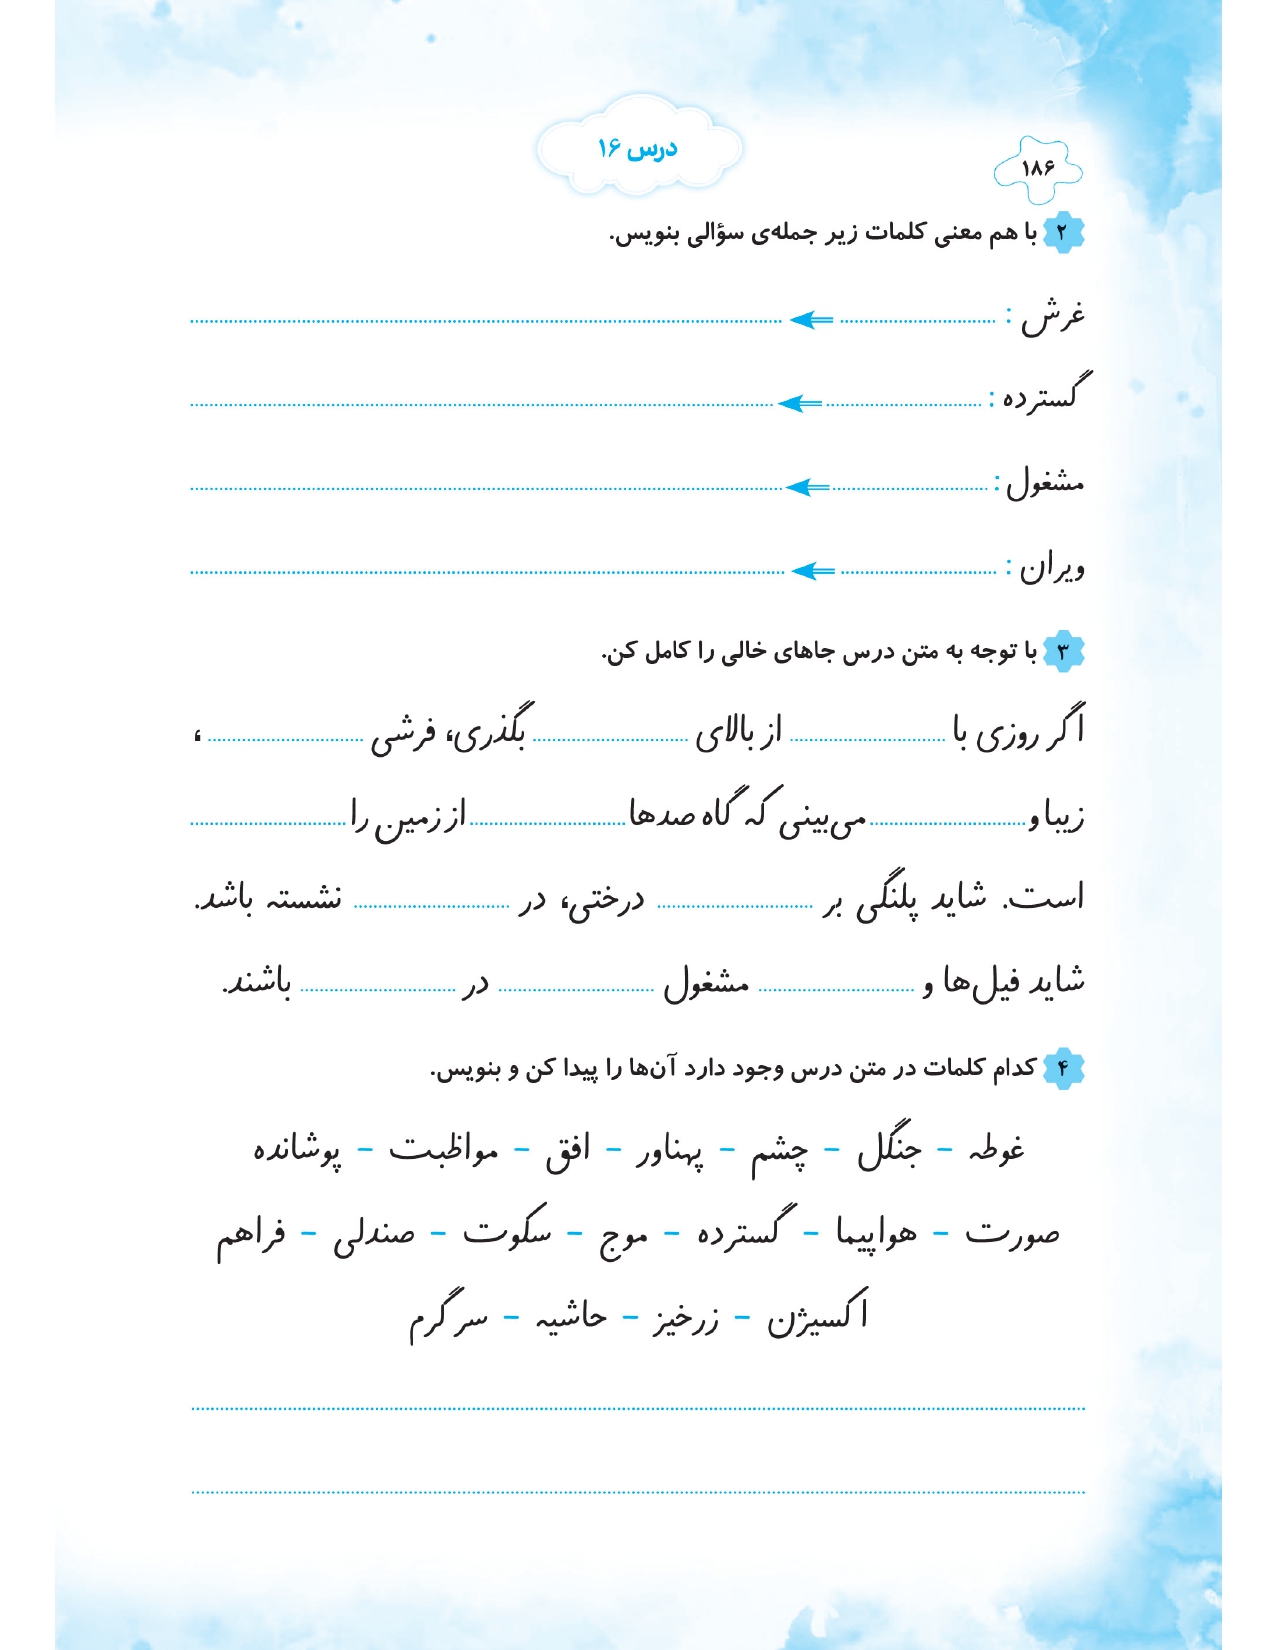 درس ۱۶
۱۸۶
۲ با هم معنی کلمات زیر جمله‌ی سؤالی بنویس.
غرش :
گسترده :
مشغول :
ویران :
۳ با توجه به متن درس جاهای خالی را کامل کن.
اگر روزی با ........ از بالای ........ بگذری، فرشی ........ ،
زیبا و ........ می‌بینی که گاه صدها ........ از زمین را ........
است. شاید پلنگی بر ........ درختی، در ........ نشسته باشد.
شاید فیل‌ها و ........ مشغول ........ در ........ باشند.
۴ کدام کلمات در متن درس وجود دارد آن‌ها را پیدا کن و بنویس.
غوطه – جنگل – چشم – پهناور – افق – مواظبت – پوشانده
صورت – هواپیما – گسترده – موج – سکوت – صندلی – فراهم
اکسیژن – زرخیز – حاشیه – سرگرم